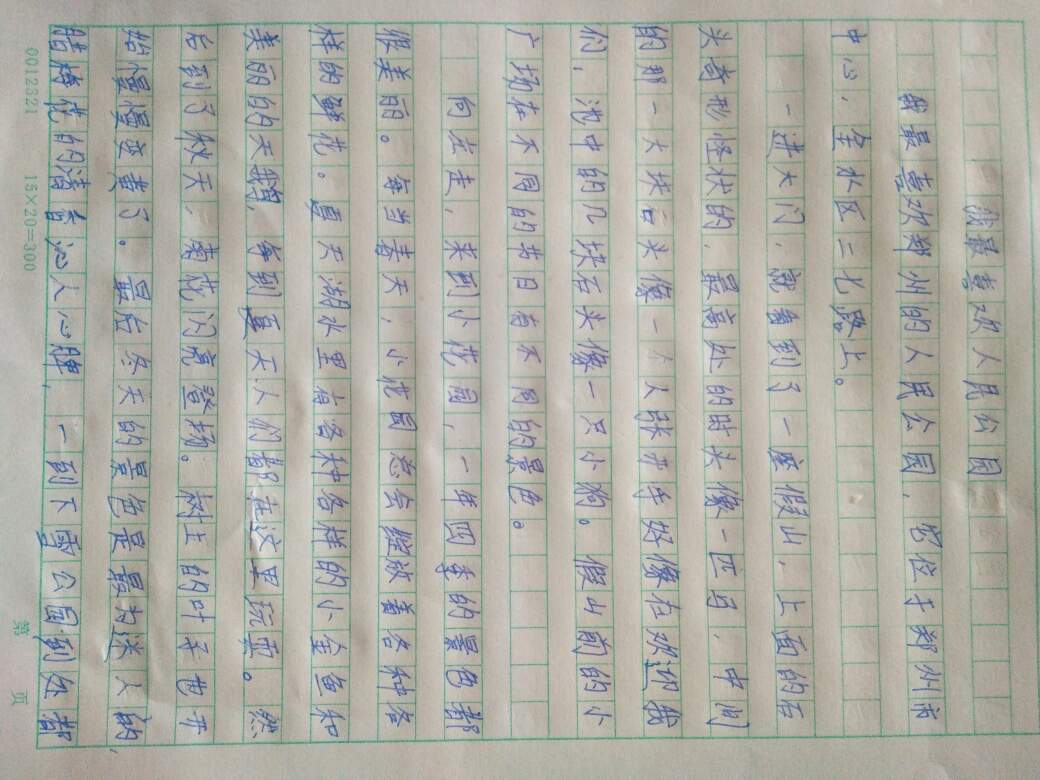 我最喜欢人民公园
我最喜欢郑州的人民公园,它位于郑州市
中心,金水区二七路上。
一进大门,就看到了一座假山,上面的石
头奇形怪状的,最高处的时头像一匹马,中间
的那一大块石头像一个人张开手好像在欢迎我
们,池中的几块石头像一只小狗。假山前的小
广场在不同的节日有不同的景色。
向左走,来到小花园,一年四季的景色都
很美丽。每当春天,小花园总会绽放着各种各
样的鲜花。夏天湖水里有各种各样的小金鱼和
美丽的的天鹅,每到夏天人们都在这里玩耍。然
后到了秋天,菊花闪亮登场。树上的叶子也开
始慢慢变黄了。最后冬天的景色是最为迷人的,
腊梅花的清香沁人心脾,一到下雪公园到处都
0012321 15×20=300 第 页